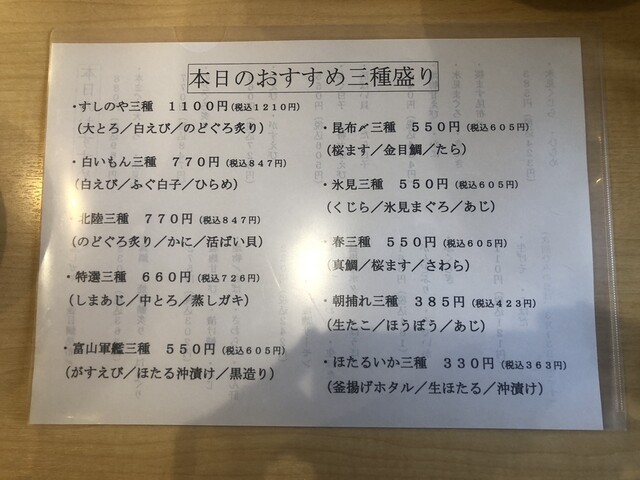 本日のおすすめ三種盛り
・すしのや三種 1100円(税込1210円)
(大とろ/白えび/のどぐろ炙り)
・白いもん三種 770円(税込847円)
(白えび/ふぐ白子/ひらめ)
・北陸三種 770円(税込847円)
(のどぐろ炙り/かに/活ばい貝)
・特選三種 660円(税込726円)
(しまあじ/中とろ/蒸しガキ)
・富山軍艦三種 550円(税込605円)
(がすえび/ほたる沖漬け/黒造り)
・昆布〆三種 550円(税込605円)
(桜ます/金目鯛/たら)
・氷見三種 550円(税込605円)
(くじら/氷見まぐろ/あじ)
・春三種 550円(税込605円)
(真鯛/桜ます/さわら)
・朝捕れ三種 385円(税込423円)
(生たこ/ほうぼう/あじ)
・ほたるいか三種 330円(税込363円)
(釜揚げホタル/生ほたる/沖漬け)